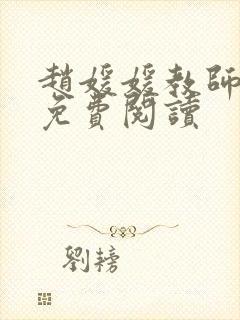 趙媛媛教師
免費閱讀
劉耪